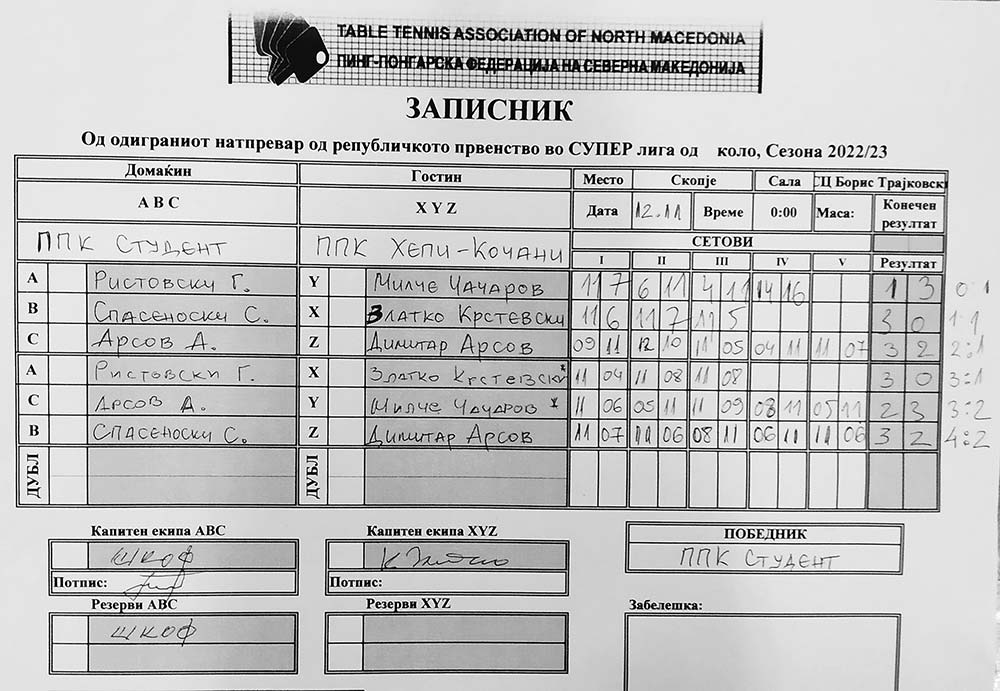 TABLE TENNIS ASSOCIATION OF NORTH MACEDONIA
ПИНГ-ПОНГАРСКА ФЕДЕРАЦИЈА НА СЕВЕРНА МАКЕДОНИЈА
ЗАПИСНИК
Од одиграниот натпревар од републичкото првенство во СУПЕР лига од коло, Сезона 2022/23
Домаќин Гостин Место Скопје Сала СЦ Борис Трајковски
A B C X Y Z Дата 12.11 Време 0:00 Маса: Конечен резултат
ППК СТУДЕНТ ППК ХЕПИ-КОЧАНИ СЕТОВИ
I II III IV V Резултат
A Ристовски Г. Y Милче Чачаров 11 7 6 11 4 11 14 16 1 3 0 1
B Спасеноски С. X Златко Крстевски 11 6 11 7 11 5 3 0 1:1
C Арсов А. Z Димитар Арсов 09 11 12 10 11 05 04 11 11 07 3 2 2:1
A Ристовски Г. X Златко Крстевски 11 04 11 08 11 08 3 0 3:1
C Арсов А. Y Милче Чачаров 11 06 05 11 11 09 08 11 05 11 2 3 3:2
B Спасеноски С. Z Димитар Арсов 11 07 11 06 08 11 06 11 11 06 3 2 4:2
ДУБЛ ДУБЛ
Капитен екипа ABC Капитен екипа XYZ ПОБЕДНИК
ШКОФ ППК СТУДЕНТ
Потпис: Потпис:
Резерви ABC Резерви XYZ Забелешка:
ШКОФ